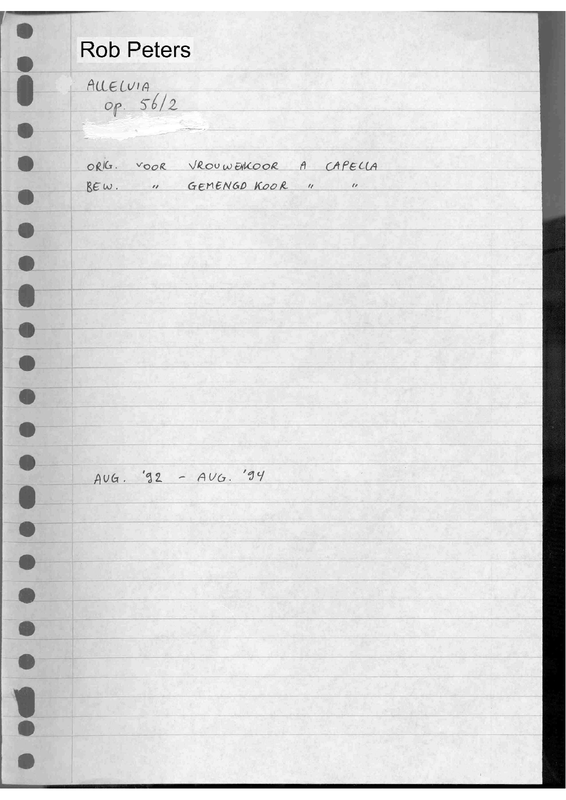 Rob Peters
ALLELUIA
op. 56/2
ORIG. VOOR VROUWENKOOR A CAPELLA
BEW. " GEMENGD KOOR " "
AUG. '92 - AUG. '94